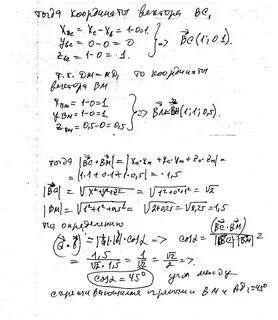 тогда координаты вектора BC₁
x_BC = x_C - x_B = 1-0=1.
y_BC = 0-0 = 0
z_BC = 1-0 = 1.
=> BC(1; 0; 1)
т.к. DM=MD₁ то координаты
вектора BM
x_BM = 1-0=1.
y_BM = 1-0=1
z_BM = 0,5-0=0,5
=> BM(1; 1; 0,5)
тогда |BC·BM| = |x₀·x_m + y₀·y_m + z₀·z_m| =
= |1·1+0·1+1·0,5| = 1,5
|BC| = √x²+y²+z² = √1²+0²+1² = √2
|BM| = √1²+1²+0,5² = √2+0,25 = √2,25 = 1,5
По определению
(a·b) = |a|·|b|·cosα => cosα = (BC·BM) / |BC|·|BM| =
= 1,5 / √2·1,5 = 1/√2 = √2/2 =>
cosα=45° угол между
скрещивающимися прямыми BM и AD₁ = 45°